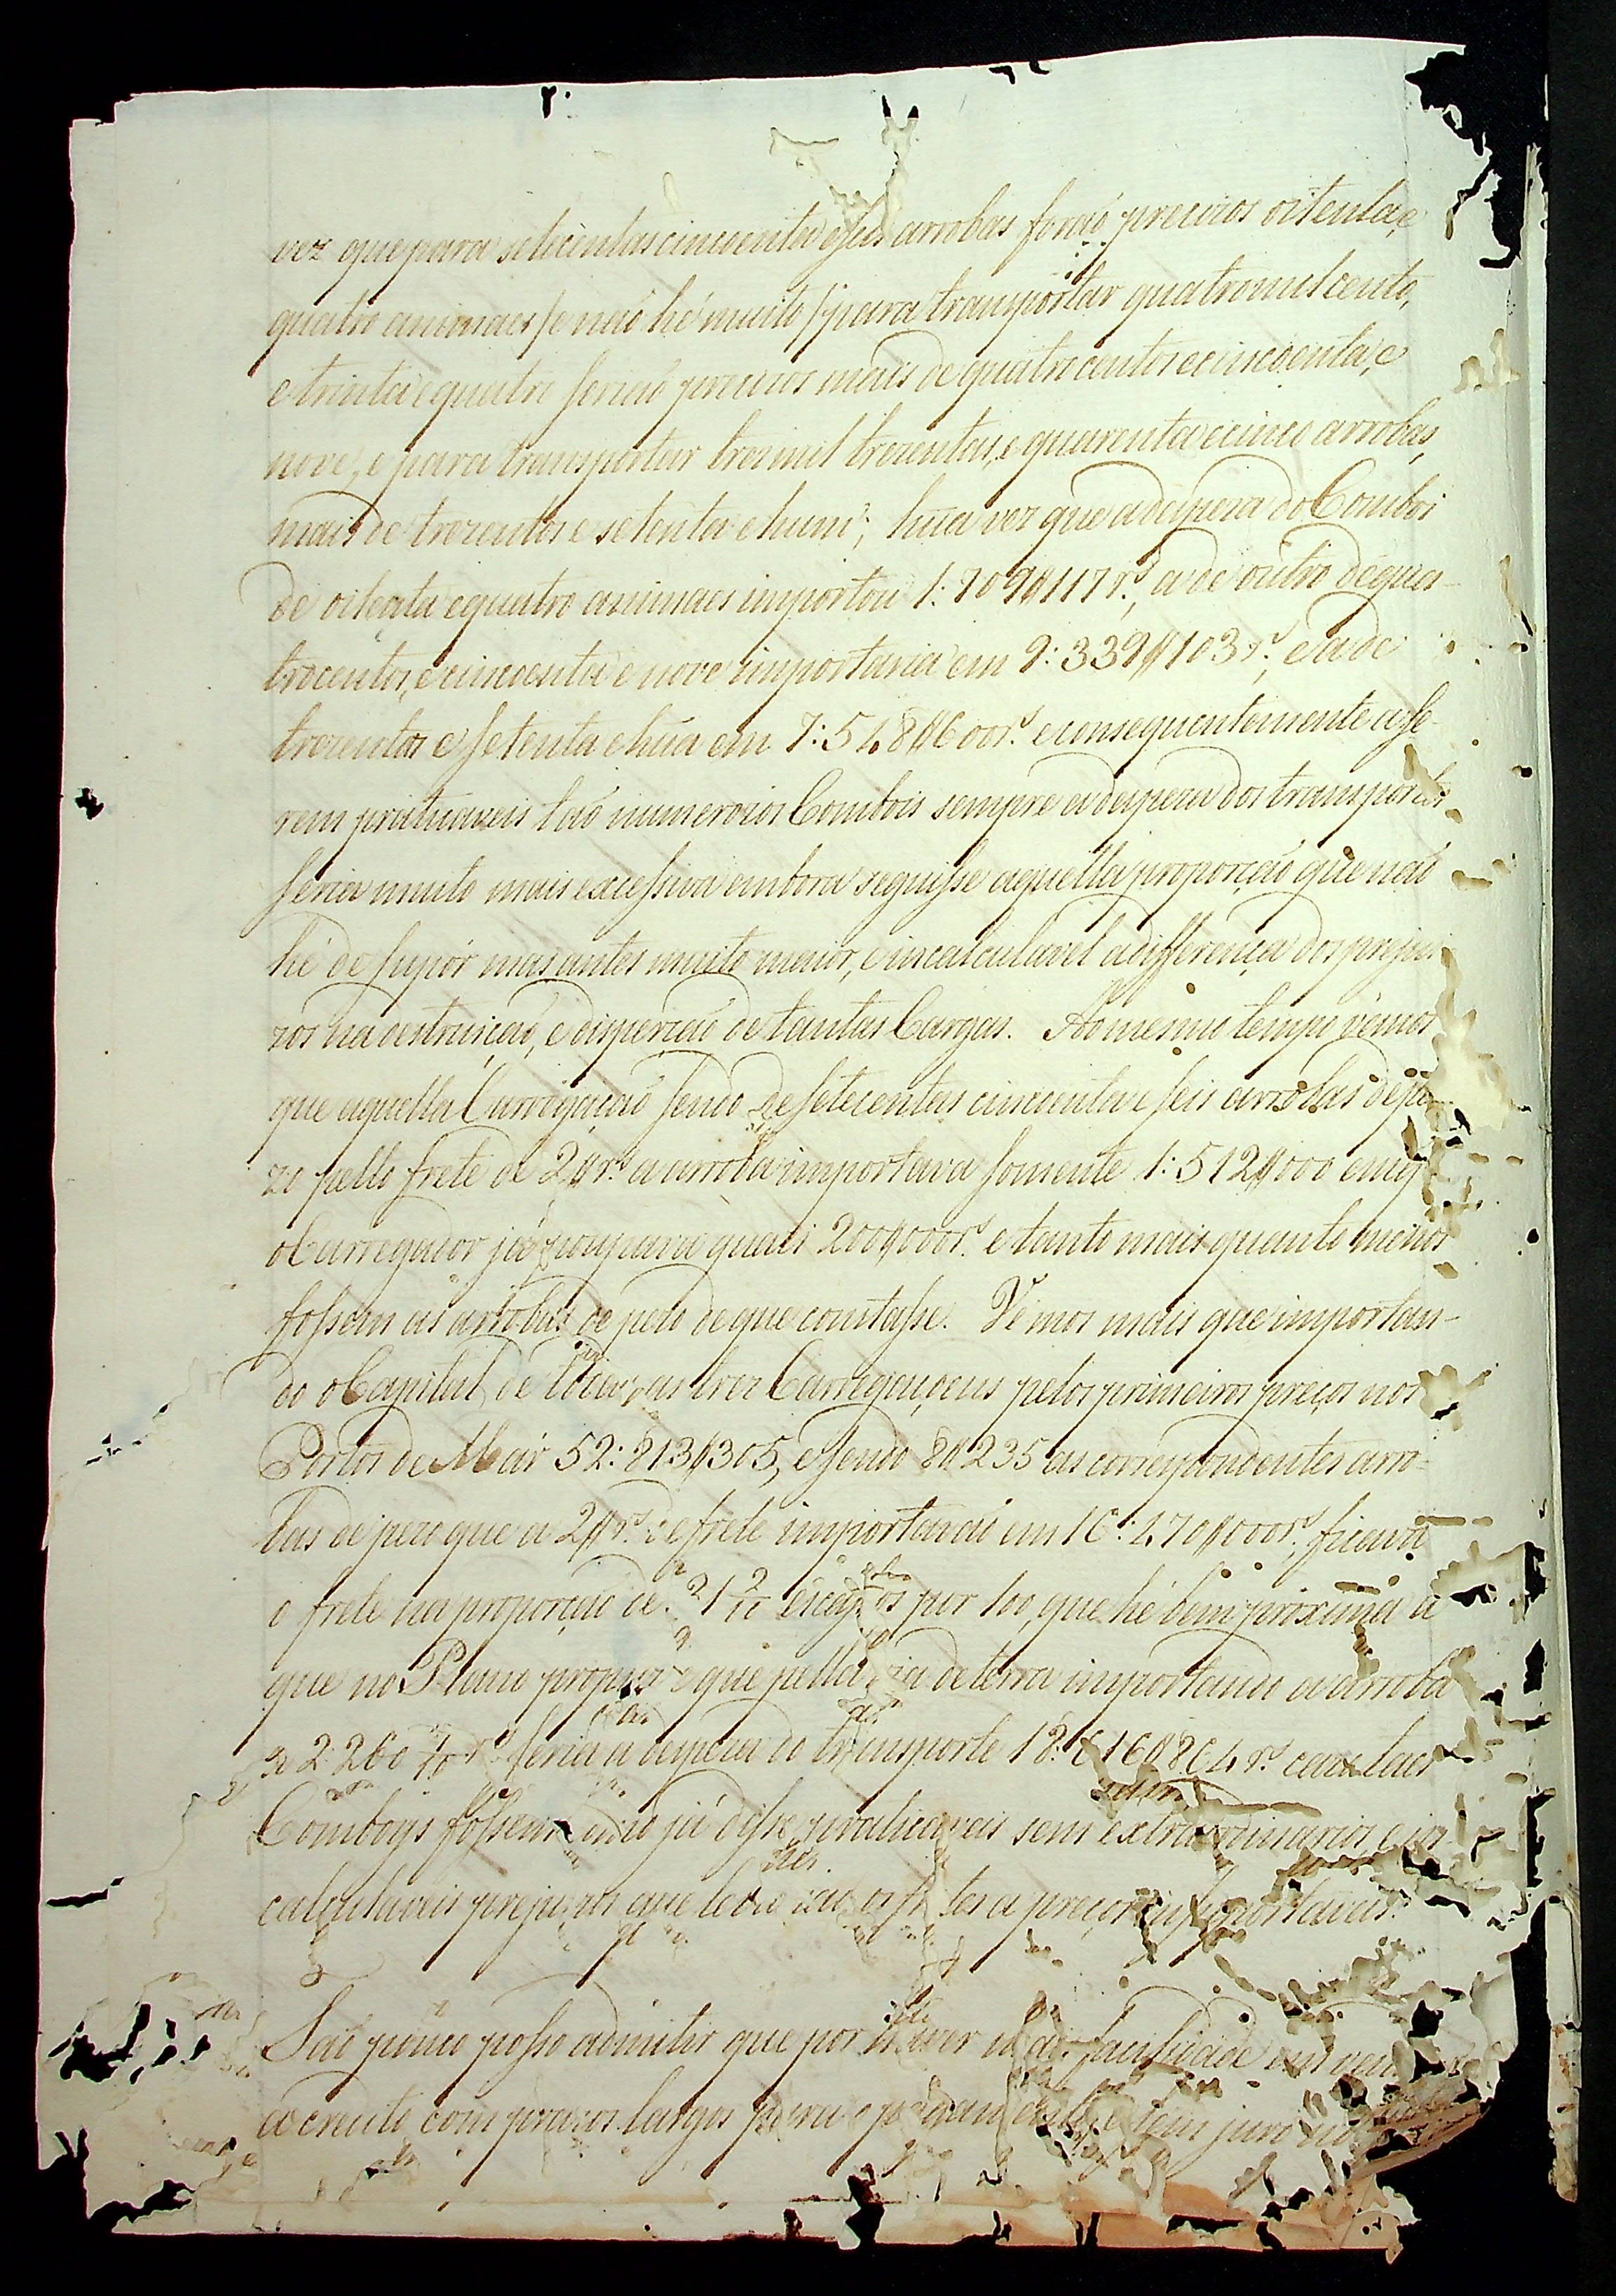 vez que para setecentas cincoenta e seis arrobas foraõ precizos oitenta, e
quatro animaes se naõ hé muito para transportar quatro mil cento,
e trinta e quatro seriaõ precizos mais de quatro centos e cincoenta, e
nove, e para transportar tres mil trezentas, e quarenta e cinco arrobas,
mais de trezentos e setenta e hum; hũa vez que a despeza do Comboi
de oitenta e quatro animaes importou 1:709$117 rs., a de outro de qua-
trocentos, e cincoenta e nove importaria em 9:339$103 rs., e a de
trezentos e setenta e hũa em 7:548$600 rs. e consequentemente a se-
rem praticaveis taõ numerozos Combois sempre a despeza dos transportes
seria muito mais excessiva embora seguisse aquella proporçaõ que naõ
hé de supôr mas antes muito maior, e incalculavel a differença dos prejui-
zos na destruiçaõ, e disperçaõ de tantas Cargas. Ao mesmo tempo vemos
que aquella Carregaçaõ sendo de setecentas cincoenta e seis arrobas de pe-
zo pello frete de 2$ rs. a arroba importava somente 1:512$000 em q
o Carregador já poupava quazi 200$000 rs. e tanto mais quanto menos
fossem as arrobas de pezo de que constasse. Vemos mais que importan-
do o Capital de todas as tres Carregaçoens pelos primeiros preços nos
Portos de Mar 52:813$305, e sendo 8$235 as correspondentes arro-
bas de pezo que a 2$ rs. de frete importavaõ em 16:470$000 rs., ficava
o frete na proporçaõ de por 100, que hé bem proxima a
que no Plano propuz e que pella via de terra importando a arroba
a seria a despeza do transporte 18: cazo taes
Comboys fossem como já disse praticaveis sem extraordinarios, e in-
calculaveis prejuizos que os a preços insuportaveis.
Taõ pouco posso admitir que por haver mais facilidade em
a credito com prazos largos para o pagamento, e sem juro